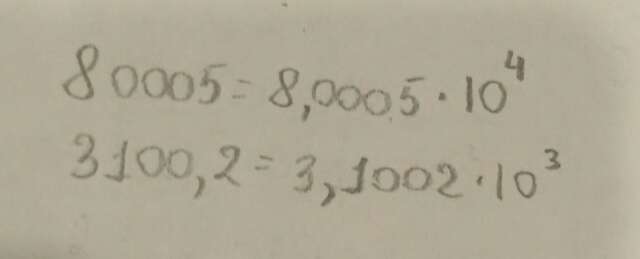 80005 = 8,0005 · 10⁴
3100,2 = 3,1002 · 10³